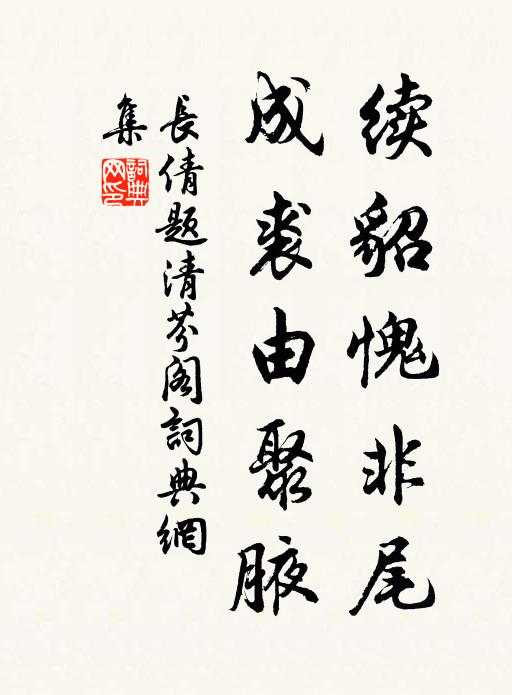 续貂愧非尾
成裘由聚腋
長倩题清芬阁詞典網
集
詞典网印